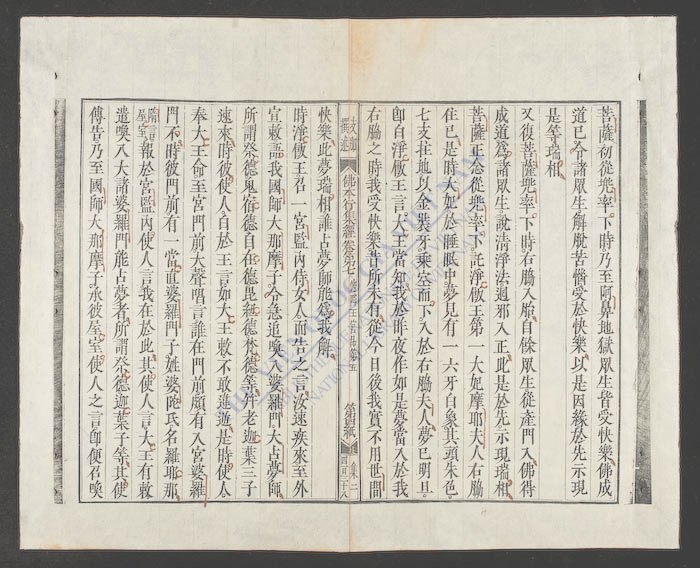 菩薩初從兜率下時乃至阿鼻地獄眾生皆受快樂佛成
道已令諸眾生解脫苦惱受於快樂以是因緣於先示現
是等瑞相
又復菩薩兜率下時右脇入胎自餘眾生從產門入佛得
成道爲諸眾生說清淨法迴邪入正此是於先示現瑞相
菩薩正念從兜率下託淨飯王第一大妃摩耶夫人右脇
住已是時大妃於睡眠中夢見有一六牙白象其頭朱色
七支拄地以金裝牙乘空而下入於右脇夫人夢已明旦
即白淨飯王言大王當知我於昨夜作如是夢當入於我
右脇之時我受快樂昔所未有從今日後我實不用世間
佛本行集經卷第七
快樂此夢瑞相誰占夢師能爲我解
時淨飯王召一宮監內侍女人而告之言汝速疾來至外
宣敕語我國師大那摩子令急追喚八婆羅門大占夢師
所謂祭德鬼宿德自在德毘紐德梵德等并老迦葉三子
速來時彼使人白於王言如大王敕不敢違逆是時使人
奉大王命至宮門前大聲唱言誰在門前頗有入宮婆羅
門不時彼門前有一當直婆羅門子姓婆陀氏名羅耶那
隋言屋室報於宮監內使人言我在於此其使人言大王有敕
遣喚八大諸婆羅門能占夢者所謂祭德迦葉子等其使
傳告乃至國師大那摩子承彼屋室使人之言即便召喚